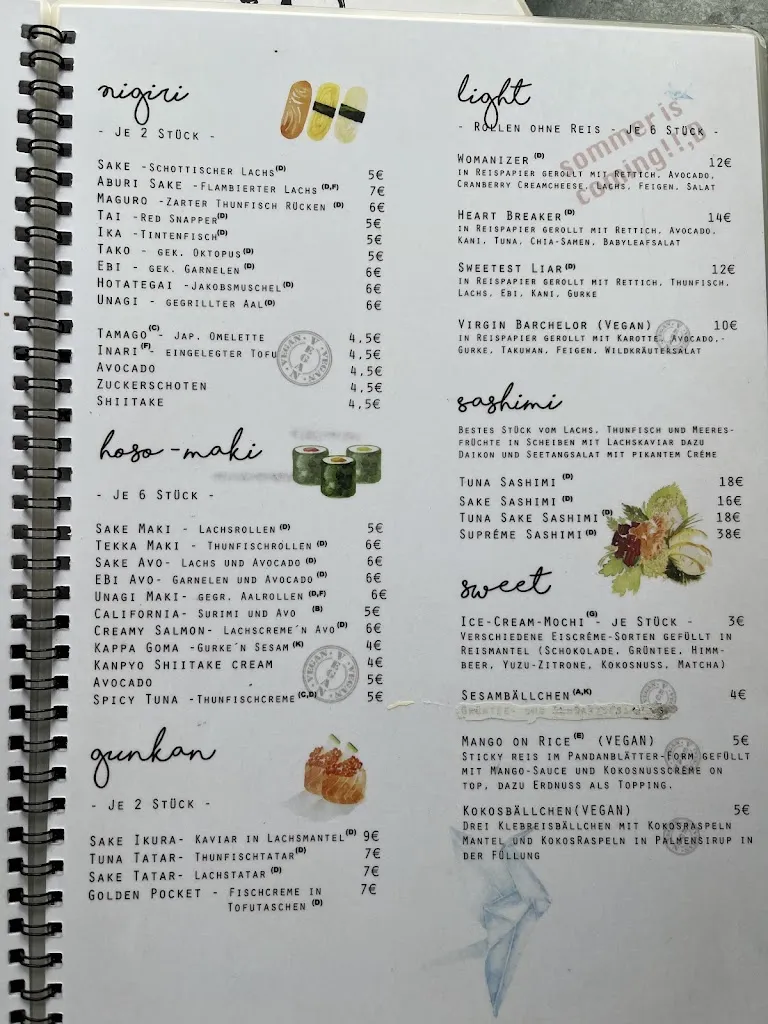 nigiri
- Je 2 Stück -
Sake -Schottischer Lachs(D) 5€
Aburi Sake -Flambierter Lachs (D,F) 7€
Maguro -Zarter Thunfisch Rücken (D) 6€
Tai -Red Snapper(D) 5€
Ika -Tintenfisch(D) 5€
Tako - gek. Oktopus(D) 5€
Ebi - gek. Garnelen(D) 6€
Hotategai -Jakobsmuschel(D) 6€
Unagi - gegrillter Aal(D) 6€
Tamago(C)- Jap. Omelette 4,5€
Inari(F)- eingelegter Tofu 4,5€
Avocado 4,5€
Zuckerschoten 4,5€
Shiitake 4,5€
VEGAN
hoso-maki
- Je 6 Stück -
Sake Maki - Lachsrollen(D) 5€
Tekka Maki - Thunfischrollen(D) 6€
Sake Avo- Lachs und Avocado(D) 6€
EBi Avo- Garnelen und Avocado(D) 6€
Unagi Maki- gegr. Aalrollen(D,F) 6€
California- Surimi und Avo (B) 5€
Creamy Salmon- Lachscreme´n Avo(D) 6€
Kappa Goma -Gurke´n Sesam(K) 4€
Kanpyo Shiitake cream 4€
Avocado 5€
Spicy Tuna -Thunfischcreme(C,D) 5€
VEGAN
gunkan
- Je 2 Stück -
Sake Ikura- Kaviar in Lachsmantel(D) 9€
Tuna Tatar- Thunfischtatar(D) 7€
Sake Tatar- Lachstatar(D) 7€
Golden Pocket - Fischcreme in 7€
Tofutaschen(D)
light
- Rollen ohne Reis - Je 6 Stück -
Sommer is
coming!!;D
Womanizer(D) 12€
in Reispapier gerollt mit Rettich, Avocado,
Cranberry Creamcheese, Lachs, Feigen, Salat
Heart Breaker(D) 14€
in Reispapier gerollt mit Rettich, Avocado,
Kani, Tuna, Chia-Samen, Babyleafsalat
Sweetest Liar(D) 12€
in Reispapier gerollt mit Rettich, Thunfisch,
Lachs, Ebi, Kani, Gurke
Virgin Barchelor (Vegan) 10€
in Reispapier gerollt mit Karotte, Avocado,-
Gurke, Takuwan, Feigen, Wildkräutersalat
sashimi
Bestes Stück vom Lachs, Thunfisch und Meeres-
früchte in Scheiben mit Lachskaviar dazu
Daikon und Seetangsalat mit pikantem Crème
Tuna Sashimi (D) 18€
Sake Sashimi (D) 16€
Tuna Sake Sashimi(D) 18€
Suprême Sashimi(D) 38€
sweet
Ice-Cream-Mochi(G)- je Stück - 3€
Verschiedene Eiscrème-Sorten gefüllt in
Reismantel (Schokolade, Grüntee, Himm-
beer, Yuzu-Zitrone, Kokosnuss, Matcha)
Sesambällchen(A,K) 4€
Mango on Rice(E) (VEGAN) 5€
Sticky reis im Pandanblätter-Form gefüllt
mit Mango-Sauce und Kokosnusscrème on
top, dazu Erdnuss als Topping.
Kokosbällchen(VEGAN) 5€
Drei Klebreisbällchen mit Kokosraspeln
Mantel und KokosRaspeln in Palmensirup in
der Füllung